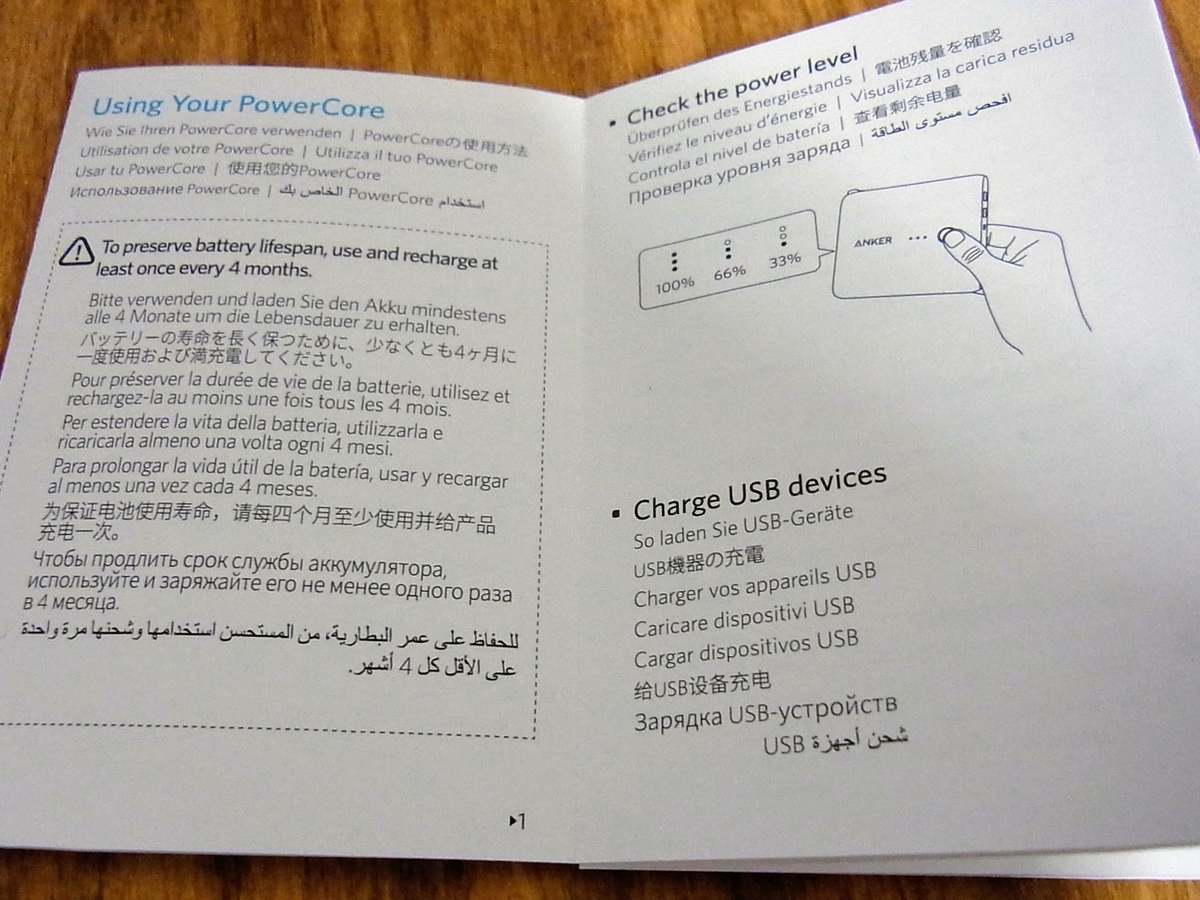 Using Your PowerCore
Wie Sie Ihren PowerCore verwenden | PowerCoreの使用方法
Utilisation de votre PowerCore | Utilizza il tuo PowerCore
Usar tu PowerCore | 使用您的PowerCore
Использование PowerCore | استخدام PowerCore الخاص بك
To preserve battery lifespan, use and recharge at
least once every 4 months.
Bitte verwenden und laden Sie den Akku mindestens
alle 4 Monate um die Lebensdauer zu erhalten.
バッテリーの寿命を長く保つために、少なくとも4ヶ月に
一度使用および満充電してください。
Pour préserver la durée de vie de la batterie, utilisez et
rechargez-la au moins une fois tous les 4 mois.
Per estendere la vita della batteria, utilizzarla e
ricaricarla almeno una volta ogni 4 mesi.
Para prolongar la vida útil de la batería, usar y recargar
al menos una vez cada 4 meses.
为保证电池使用寿命，请每四个月至少使用并给产品
充电一次。
Чтобы продлить срок службы аккумулятора,
используйте и заряжайте его не менее одного раза
в 4 месяца.
للحفاظ على عمر البطارية، من المستحسن استخدامها وشحنها مرة واحدة
على الأقل كل 4 أشهر.
▸1
• Check the power level
Überprüfen des Energiestands | 電池残量を確認
Vérifiez le niveau d'énergie | Visualizza la carica residua
Controla el nivel de batería | 查看剩余电量
Проверка уровня заряда | افحص مستوى الطاقة
100% 66% 33%
ANKER
• Charge USB devices
So laden Sie USB-Geräte
USB機器の充電
Charger vos appareils USB
Caricare dispositivi USB
Cargar dispositivos USB
给USB设备充电
Зарядка USB-устройств
شحن أجهزة USB